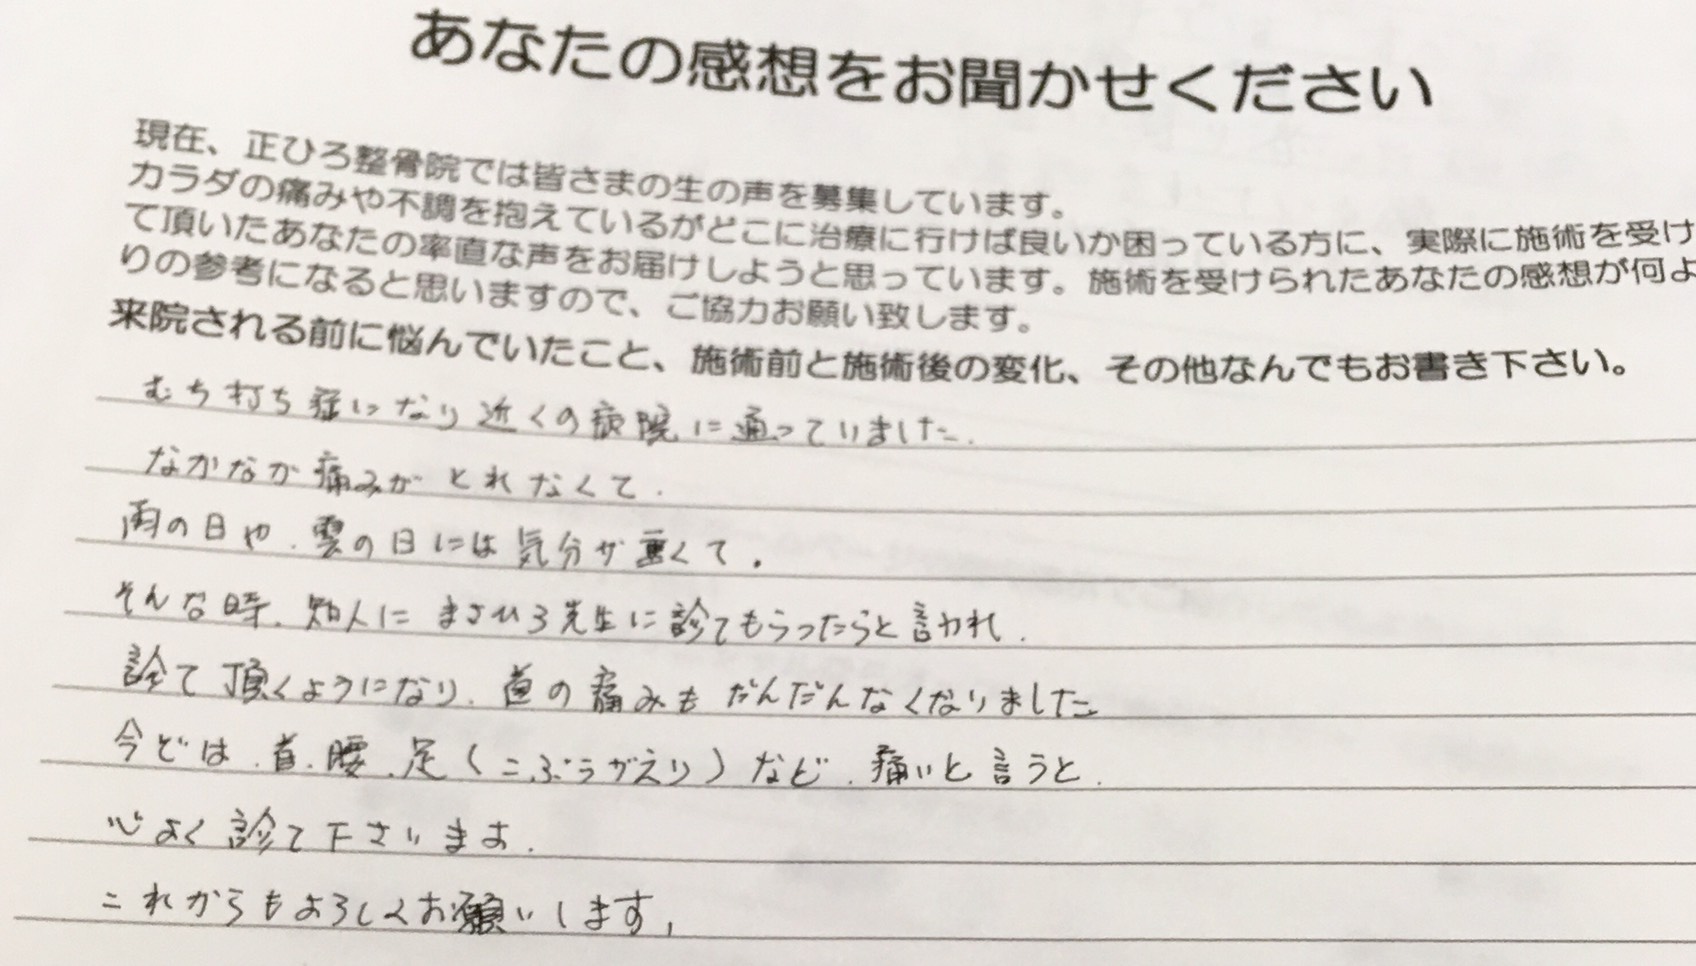 あなたの感想をお聞かせください
現在、正ひろ整骨院では皆さまの生の声を募集しています。
カラダの痛みや不調を抱えているがどこに治療に行けば良いか困っている方に、実際に施術を受け
て頂いたあなたの率直な声をお届けしようと思っています。施術を受けられたあなたの感想が何よ
りの参考になると思いますので、ご協力お願い致します。
来院される前に悩んでいたこと、施術前と施術後の変化、その他なんでもお書き下さい。
むち打ち症になり近くの病院に通っていました.
なかなか痛みがとれなくて.
雨の日や.雲の日には気分が重くて.
そんな時.知人にまさひろ先生に診てもらったらと言われ.
診て頂くようになり.首の痛みもだんだんなくなりました
今では.首.腰.足(こぶらがえり)など.痛いと言うと.
心よく診て下さいます.
これからもよろしくお願いします,